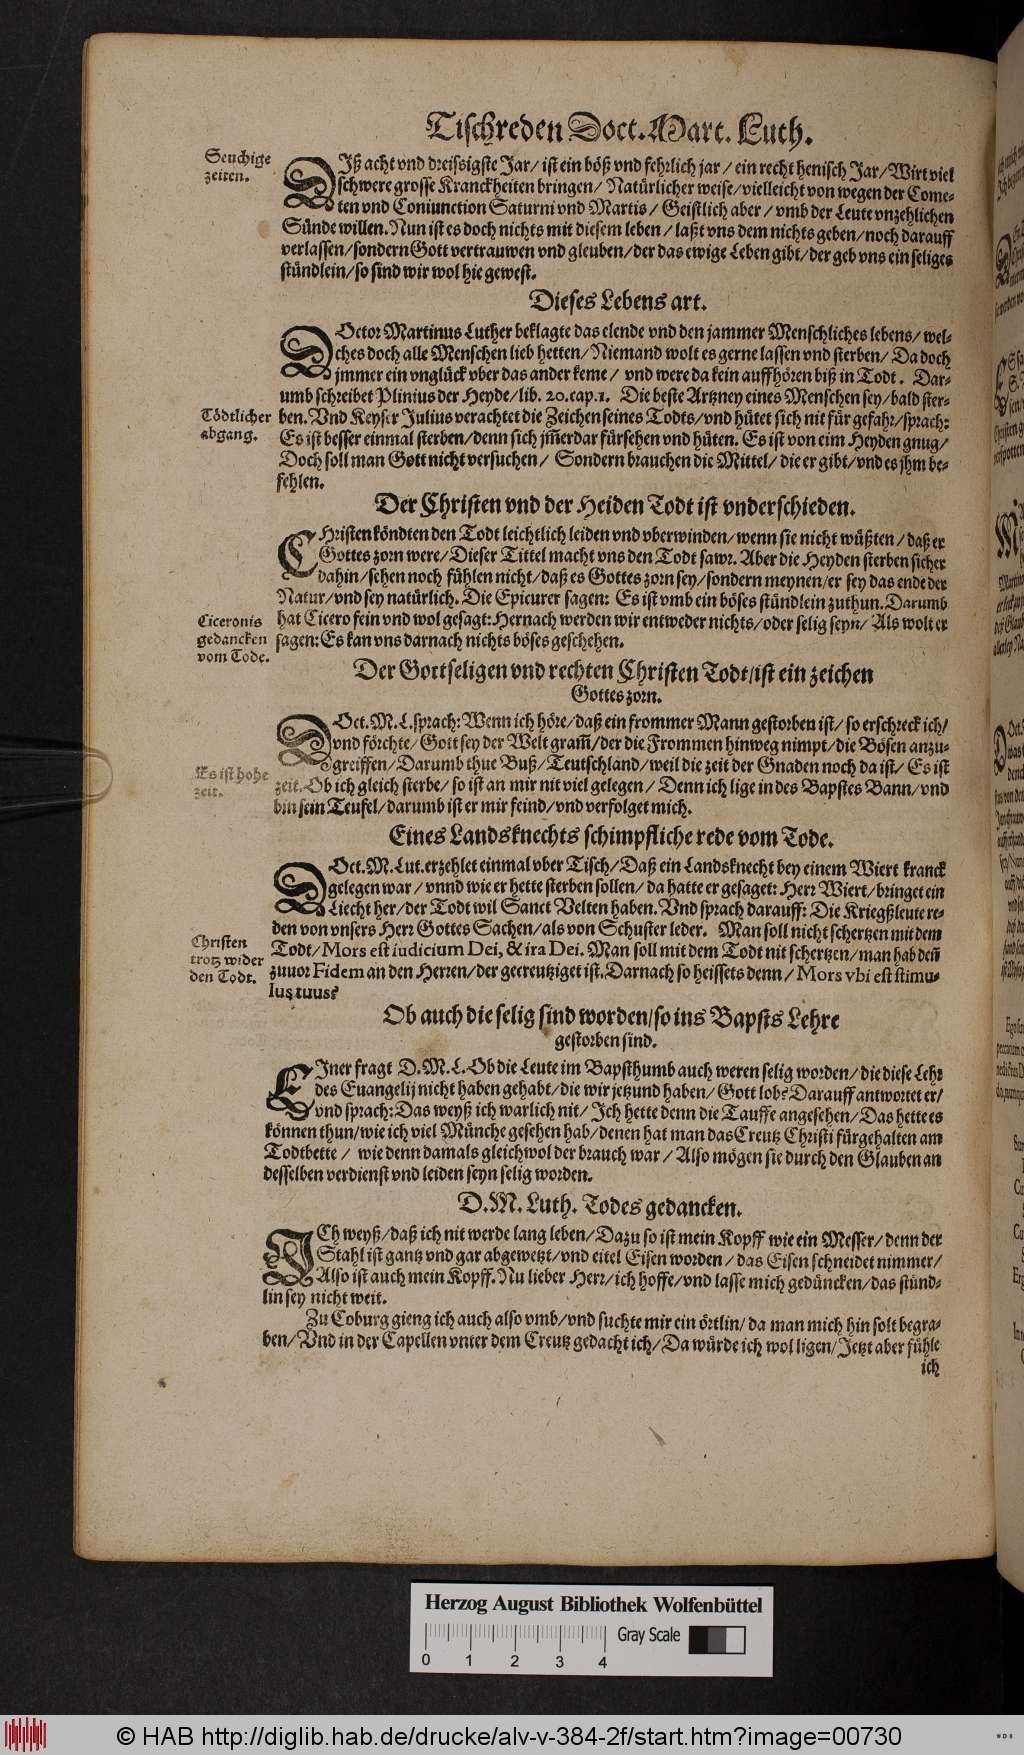 Tischreden Doct. Mart. Luth.
Seuchige
zeiten.
DIß acht vnd dreissigste Jar/ ist ein böß vnd fehrlich jar / ein recht henisch Jar/ Wirt viel
schwere grosse Kranckheiten bringen/ Natürlicher weise/ vielleicht von wegen der Come-
ten vnd Coniunction Saturni vnd Martis / Geistlich aber / vmb der Leute vnzehlichen
Sünde willen. Nun ist es doch nichts mit diesem leben / laßt vns dem nichts geben/ noch darauff
verlassen/ sondern Gott vertrauwen vnd gleuben/ der das ewige Leben gibt/ der geb vns ein seliges
stündlein/ so sind wir wol hie gewest.
Dieses Lebens art.
DOctor Martinus Luther beklagte das elende vnd den jammer Menschliches lebens/ wel-
ches doch alle Menschen lieb hetten/ Niemand wolt es gerne lassen vnd sterben/ Da doch
jmmer ein vnglück vber das ander keme / vnd were da kein auffhören biß in Todt. Dar-
umb schreibet Plinius der Heyde/ lib. 20. cap. 1. Die beste Artzney eines Menschen sey/ bald ster-
Tödtlicher
abgang.
ben. Vnd Keyser Julius verachtet die Zeichen seines Todts/ vnd hütet sich nit für gefahr/ sprach:
Es ist besser einmal sterben/ denn sich jm̄erdar fürsehen vnd hüten. Es ist von eim Heyden gnug/
Doch soll man Gott nicht versuchen / Sondern brauchen die Mittel/ die er gibt/ vnd es jhm be-
fehlen.
Der Christen vnd der Heiden Todt ist vnderschieden.
CHristen köndten den Todt leichtlich leiden vnd vberwinden/ wenn sie nicht wüßten / daß er
Gottes zorn were/ Dieser Tittel macht vns den Todt sawr. Aber die Heyden sterben sicher
dahin/ sehen noch fühlen nicht/ daß es Gottes zorn sey/ sondern meynen/ er sey das ende der
Natur/ vnd sey natürlich. Die Epicurer sagen: Es ist vmb ein böses stündlein zuthun. Darumb
Ciceronis
gedancken
vom Tode.
hat Cicero fein vnd wol gesagt: Hernach werden wir entweder nichts/ oder selig seyn/ Als wolt er
sagen: Es kan vns darnach nichts böses geschehen.
Der Gottseligen vnd rechten Christen Todt/ ist ein zeichen
Gottes zorn.
DOct. M. L. sprach: Wenn ich höre/ daß ein frommer Mann gestorben ist/ so erschreck ich/
vnd förchte/ Gott sey der Welt gram̄/ der die Frommen hinweg nimpt/ die Bösen anzu-
greiffen/ Darumb thue Buß/ Teutschland/ weil die zeit der Gnaden noch da ist/ Es ist
Es ist hohe
zeit.
zeit. Ob ich gleich sterbe/ so ist an mir nit viel gelegen / Denn ich lige in des Bapstes Bann/ vnd
bin sein Teufel/ darumb ist er mir feind/ vnd verfolget mich.
Eines Landsknechts schimpfliche rede vom Tode.
DOct. M. Lut. erzehlet einmal vber Tisch/ Daß ein Landsknecht bey einem Wiert kranck
gelegen war / vnnd wie er hette sterben sollen/ da hatte er gesaget: Herr Wiert/ bringet ein
Liecht her/ der Todt wil Sanct Velten haben. Vnd sprach darauff: Die Kriegßleute re-
den von vnsers Herr Gottes Sachen/ als von Schuster leder. Man soll nicht schertzen mit dem
Christen
trotz wider
den Todt.
Todt/ Mors est iudicium Dei, & ira Dei. Man soll mit dem Todt nit schertzen/ man hab den̄
zuuor Fidem an den Herren/ der gecreutziget ist. Darnach so heissets denn / Mors vbi est stimu-
lus tuus?
Ob auch die selig sind worden/ so ins Bapsts Lehre
gestorben sind.
EIner fragt D. M. L. Ob die Leute im Bapsthumb auch weren selig worden/ die diese Lehr
des Euangelij nicht haben gehabt/ die wir jetzund haben/ Gott lob? Darauff antwortet er/
vnd sprach: Das weyß ich warlich nit/ Ich hette denn die Tauffe angesehen/ Das hette es
können thun/ wie ich viel Münche gesehen hab/ denen hat man das Creutz Christi fürgehalten am
Todtbette / wie denn damals gleichwol der brauch war / Also mögen sie durch den Glauben an
desselben verdienst vnd leiden seyn selig worden.
D. M. Luth. Todes gedancken.
ICh weyß/ daß ich nit werde lang leben/ Dazu so ist mein Kopff wie ein Messer/ denn der
Stahl ist gantz vnd gar abgewetzt/ vnd eitel Eisen worden / das Eisen schneidet nimmer/
Also ist auch mein Kopff. Nu lieber Herr/ ich hoffe/ vnd lasse mich gedüncken/ das stünd-
lin sey nicht weit.
Zu Coburg gieng ich auch also vmb/ vnd suchte mir ein örtlin/ da man mich hin solt begra-
ben/ Vnd in der Capellen vnter dem Creutz gedacht ich/ Da würde ich wol ligen/ Jetzt aber fühle
ich
Herzog August Bibliothek Wolfenbüttel
Gray Scale
0 1 2 3 4
© HAB http://diglib.hab.de/drucke/alv-v-384-2f/start.htm?image=00730